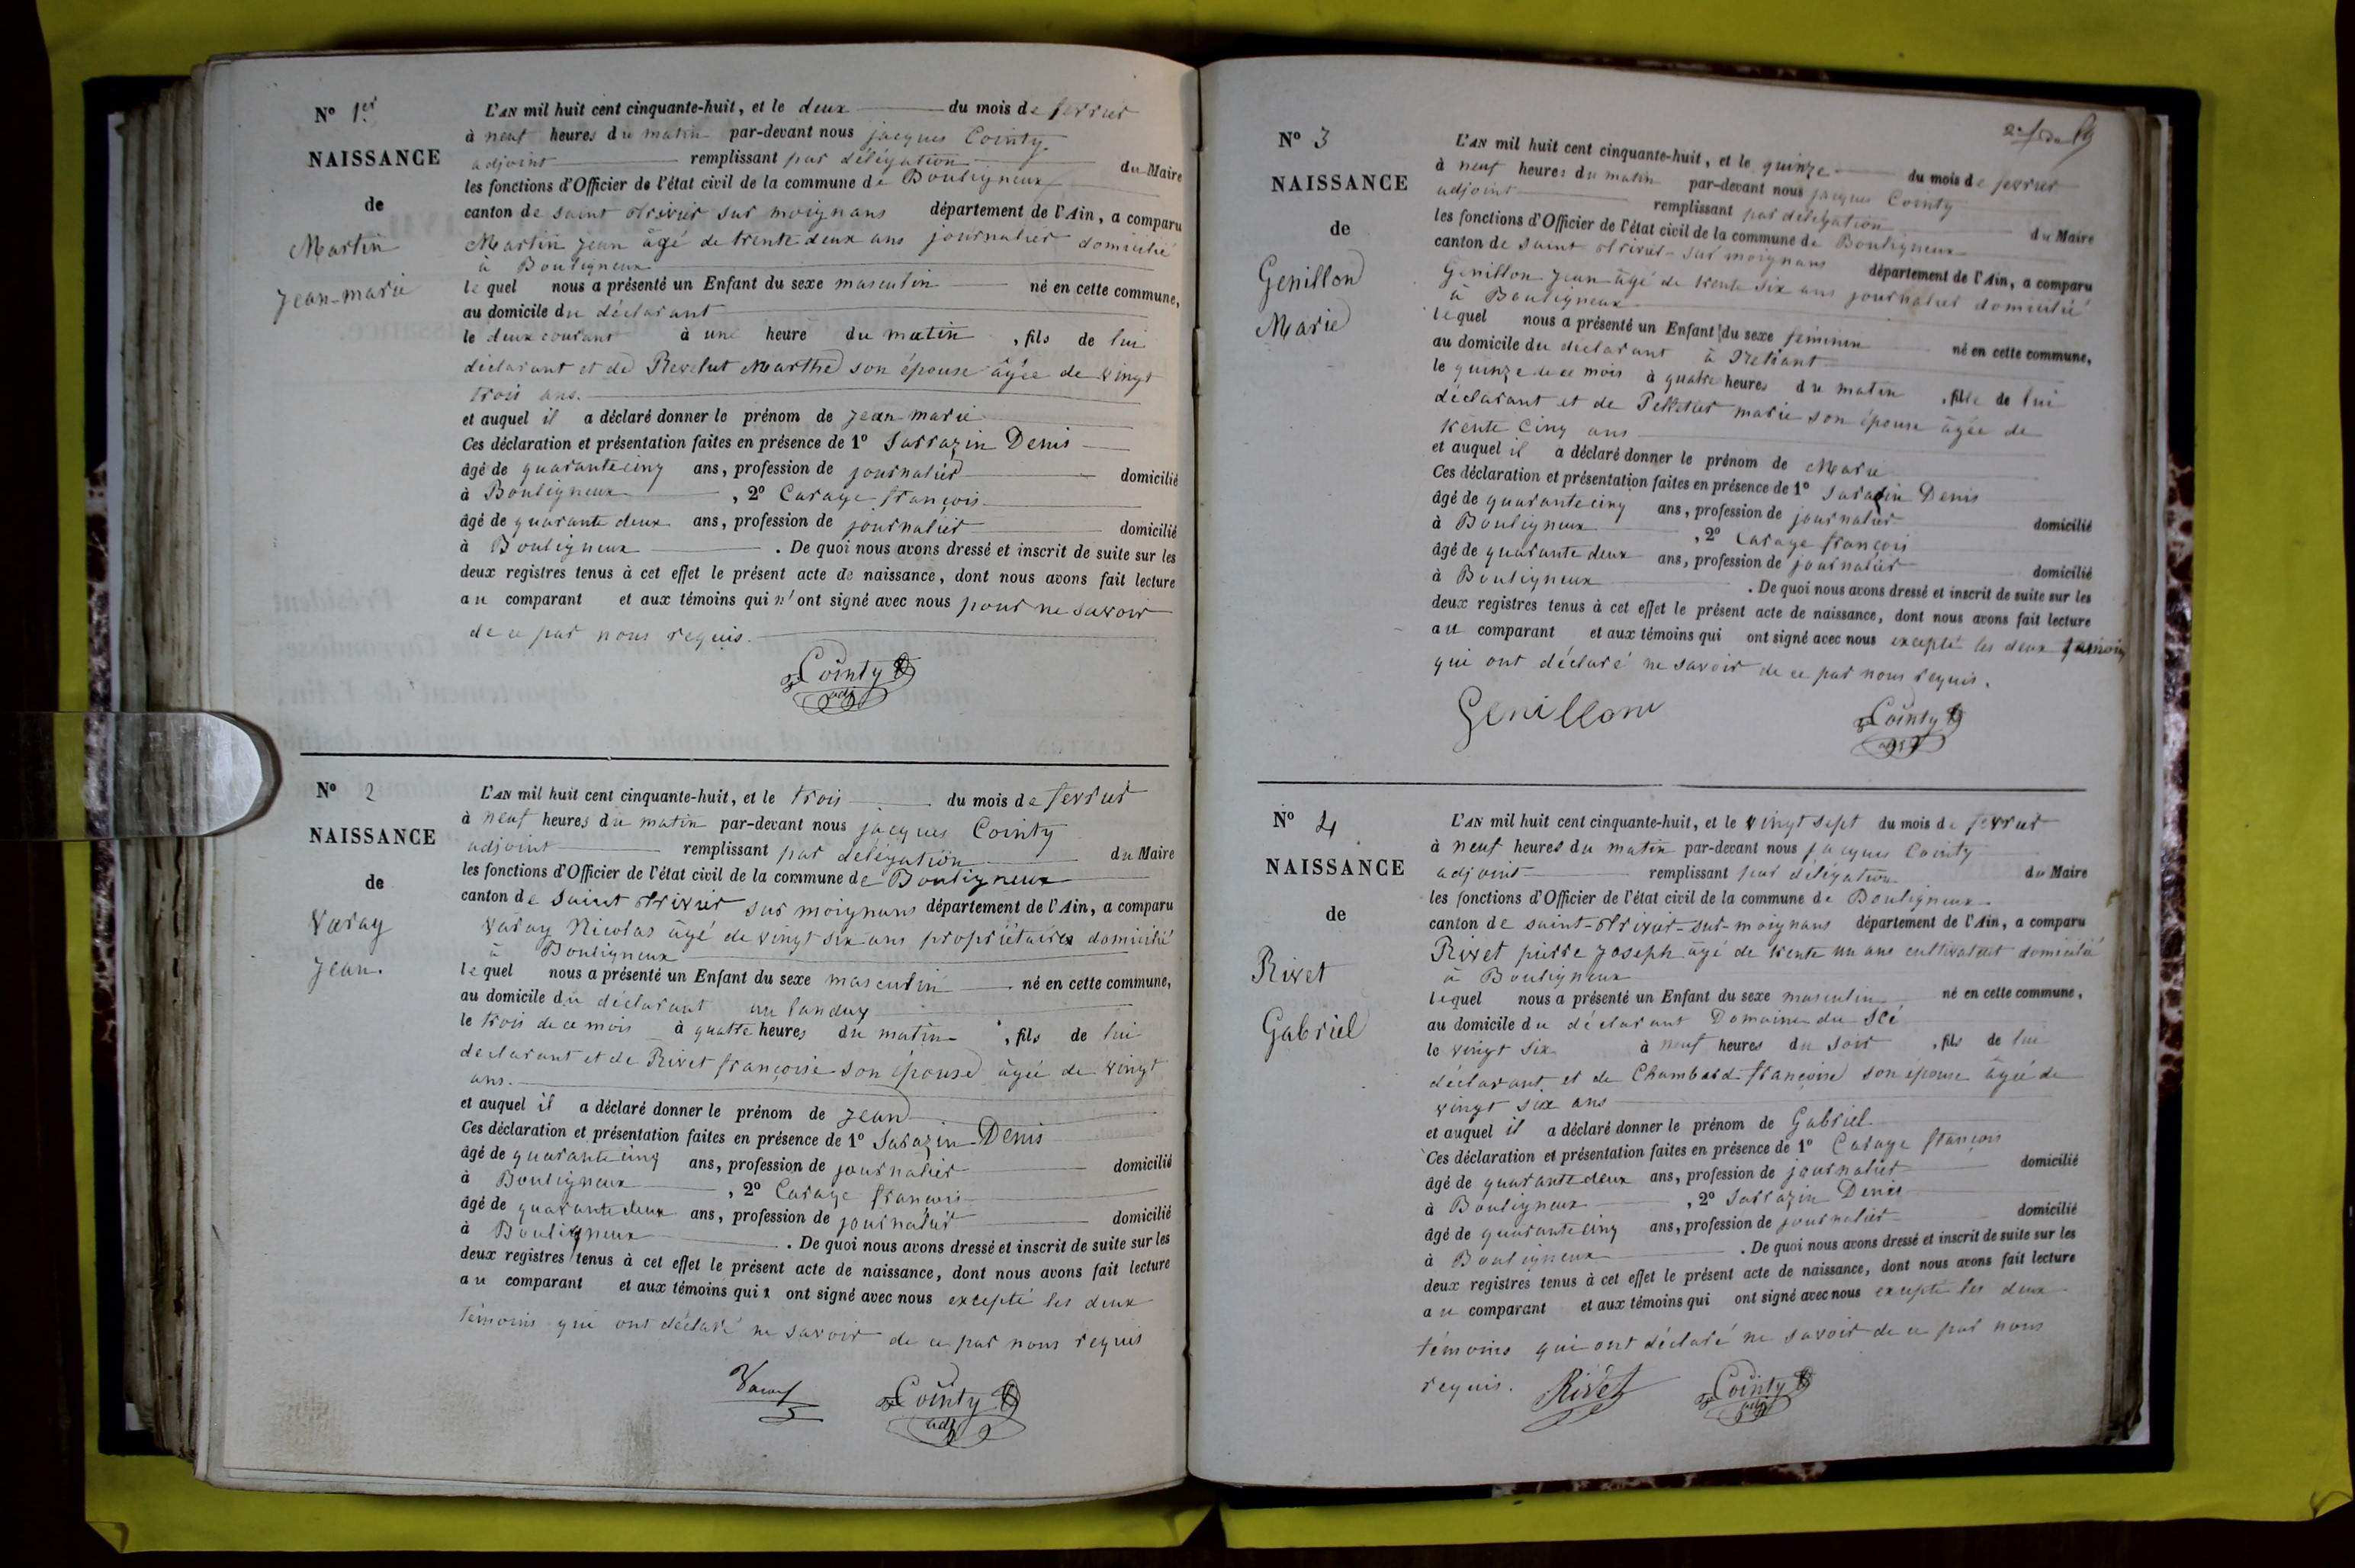 N° 1er
NAISSANCE
de
Martin
Jean-marie
L'AN mil huit cent cinquante-huit, et le deux du mois de fevrier
à neuf heures du matin par-devant nous jacques Cointy
adjoint remplissant par délégation du Maire
les fonctions d'Officier de l'état civil de la commune de Bouligneux
canton de saint trivier sur moignans département de l'Ain, a comparu
Martin jean âgé de trente deux ans journalier domicilié
à Bouligneux
lequel nous a présenté un Enfant du sexe masculin né en cette commune,
au domicile du déclarant
le deux courant à une heure du matin, fils de lui
déclarant et de Revelut Marthe son épouse âgée de vingt
trois ans.
et auquel il a déclaré donner le prénom de jean marie
Ces déclaration et présentation faites en présence de 1° Sarrazin Denis
âgé de quarante cinq ans, profession de journalier domicilié
à Bouligneux, 2° Carage françois
âgé de quarante deux ans, profession de journalier domicilié
à Bouligneux. De quoi nous avons dressé et inscrit de suite sur les
deux registres tenus à cet effet le présent acte de naissance, dont nous avons fait lecture
au comparant et aux témoins qui n'ont signé avec nous pour ne savoir
de ce par nous requis.
Cointy
adj
N° 2
NAISSANCE
de
Varay
Jean.
L'AN mil huit cent cinquante-huit, et le trois du mois de fevrier
à neuf heures du matin par-devant nous jacques Cointy
adjoint remplissant par délégation du Maire
les fonctions d'Officier de l'état civil de la commune de Bouligneux
canton de saint trivier sur moignans département de l'Ain, a comparu
Varay Nicolas âgé de vingt six ans propriétaire domicilié
à Bouligneux
lequel nous a présenté un Enfant du sexe masculin né en cette commune,
au domicile du déclarant au
le trois de ce mois à quatre heures du matin, fils de lui
déclarant et de Rivet françoise son épouse âgée de vingt
ans.
et auquel il a déclaré donner le prénom de Jean
Ces déclaration et présentation faites en présence de 1° Sarazin Denis
âgé de quarante cinq ans, profession de journalier domicilié
à Bouligneux, 2° Carage françois
âgé de quarante deux ans, profession de journalier domicilié
à Bouligneux. De quoi nous avons dressé et inscrit de suite sur les
deux registres tenus à cet effet le présent acte de naissance, dont nous avons fait lecture
au comparant et aux témoins qui ont signé avec nous excepté les deux
témoins qui ont déclaré ne savoir de ce par nous requis
Varay Cointy
adj
N° 3
NAISSANCE
de
Genillon
Marie
L'AN mil huit cent cinquante-huit, et le quinze du mois de fevrier
à neuf heures du matin par-devant nous jacques Cointy
adjoint remplissant par délégation du Maire
les fonctions d'Officier de l'état civil de la commune de Bouligneux
canton de saint trivier-sur moignans département de l'Ain, a comparu
Genillon Jean âgé de trente six ans journalier domicilié
à Bouligneux
lequel nous a présenté un Enfant du sexe féminin né en cette commune,
au domicile du déclarant à
le quinze de ce mois à quatre heures du matin, fille de lui
déclarant et de Pelletier marie son épouse âgée de
trente cinq ans
et auquel il a déclaré donner le prénom de Marie
Ces déclaration et présentation faites en présence de 1° Sarazin Denis
âgé de quarante cinq ans, profession de journalier domicilié
à Bouligneux, 2° Carage françois
âgé de quarante deux ans, profession de journalier domicilié
à Bouligneux. De quoi nous avons dressé et inscrit de suite sur les
deux registres tenus à cet effet le présent acte de naissance, dont nous avons fait lecture
au comparant et aux témoins qui ont signé avec nous excepté les deux témoins
qui ont déclaré ne savoir de ce par nous requis.
Genillon Cointy
adj
N° 4
NAISSANCE
de
Rivet
Gabriel
L'AN mil huit cent cinquante-huit, et le vingt sept du mois de fevrier
à neuf heures du matin par-devant nous jacques Cointy
adjoint remplissant par délégation du Maire
les fonctions d'Officier de l'état civil de la commune de Bouligneux
canton de saint-trivier-sur-moignans département de l'Ain, a comparu
Rivet pierre Joseph âgé de trente un ans cultivateur domicilié
à Bouligneux
lequel nous a présenté un Enfant du sexe masculin né en cette commune,
au domicile du déclarant Domaine du
le vingt six à neuf heures du soir, fils de lui
déclarant et de Chambard françoise son épouse âgée de
vingt six ans
et auquel il a déclaré donner le prénom de Gabriel
Ces déclaration et présentation faites en présence de 1° Carage françois
âgé de quarante deux ans, profession de journalier domicilié
à Bouligneux, 2° Sarrazin Denis
âgé de quarante cinq ans, profession de journalier domicilié
à Bouligneux. De quoi nous avons dressé et inscrit de suite sur les
deux registres tenus à cet effet le présent acte de naissance, dont nous avons fait lecture
au comparant et aux témoins qui ont signé avec nous excepté les deux
témoins qui ont déclaré ne savoir de ce par nous
requis. Rivet Cointy
adj